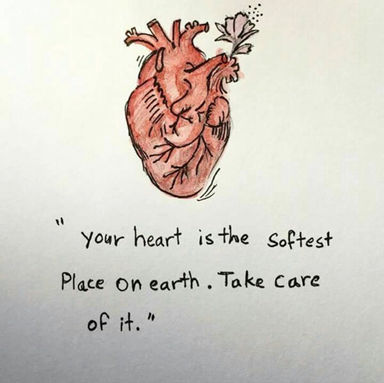 "your heart is the softest
Place on earth. Take care
of it."